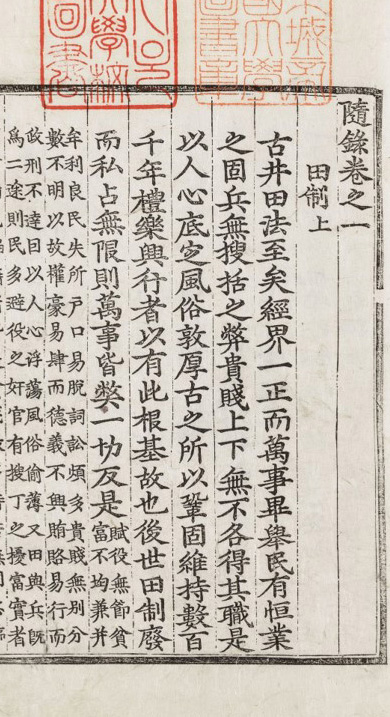 隨錄卷之一
田制上
古井田法至矣經界一正而萬事畢舉民有恒業
之固兵無搜括之弊貴賤上下無不各得其職是
以人心底定風俗敦厚古之所以鞏固維持數百
千年禮樂興行者以有此根基故也後世田制廢
而私占無限則萬事皆弊一切反是
賦役無節貧
富不均兼并
牟利良民失所戶口易脫詞訟煩多貴賤無別分
數不明以故權豪易肆而德義不興賄賂易行而
政刑不達因以人心浮蕩風俗偷薄又田與兵旣
爲二途則民多避役之奸官有搜丁之擾富實者